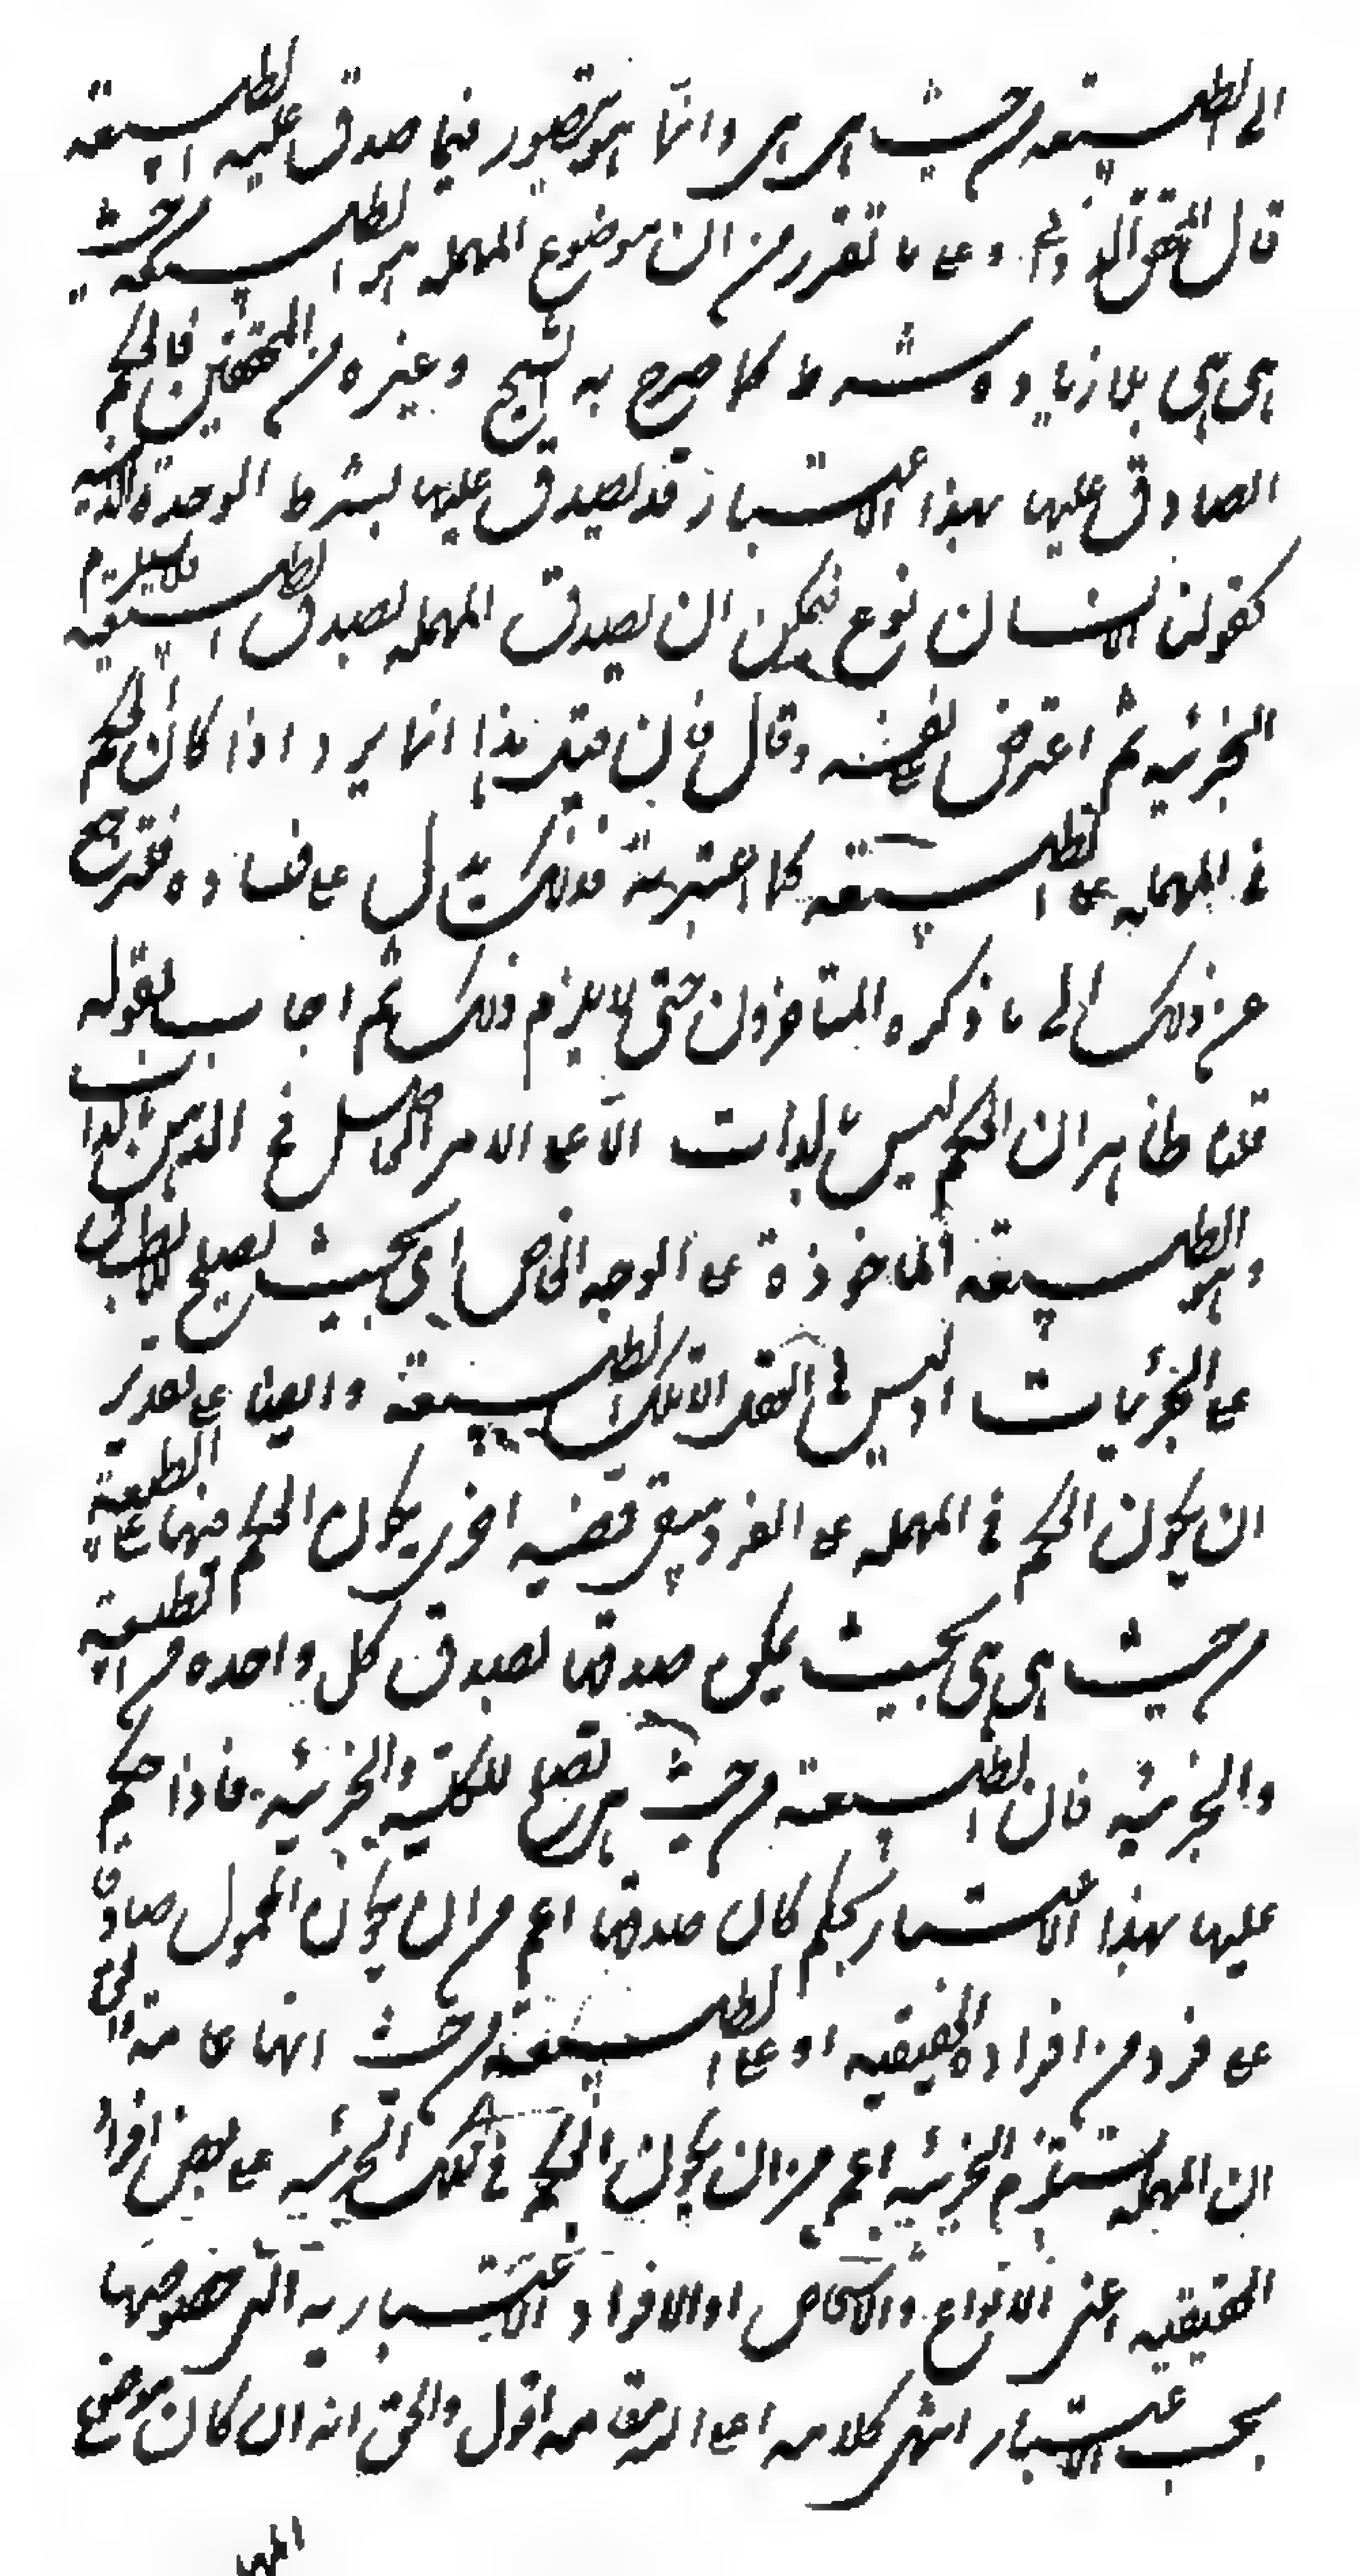 الى الطبيعة من حيث هي هي وانما هو متصور فيما صدق عليه الطبيعة
قال المحقق الدواني وعلى ما تقرر من ان موضوع المهملة هو الطبيعة من حيث
هي هي بلا زيادة شرط كما صرح به الشيخ وغيره من المحققين فالحكم
الصادق عليها بهذا الاعتبار قد يصدق عليها بشرط الوحدة الذهنية
كقولنا الانسان نوع فيمكن ان يصدق المهملة بصدق الطبيعية فلا يستلزم
الجزئية ثم اعترض على نفسه وقال فان قيل هذا انما يرد اذا كان الحكم
في المهملة على الطبيعة كما اعتبرته فذلك يدل على فساده فترجع
عن ذلك الى ما ذكره المتاخرون حتى لا يلزم ذلك ثم اجاب بقوله
قلنا ظاهر ان الحكم ليس بالذات الا على الامر الحاصل في الذهن بالذات
وهو الطبيعة الماخوذة على الوجه الخاص اى بحيث يصلح للانطباق
على الجزئيات اذ ليس في العقل الا تلك الطبيعة وايضا على تقدير
ان يكون الحكم في المهملة على الفرد يبقى قضية اخرى يكون الحكم فيها على الطبيعة
من حيث هي هي بحيث يكون صدقها بصدق كل واحدة من الطبيعية
والجزئية فان الطبيعة من حيث هي يصلح للكلية والجزئية فاذا حكم
عليها بهذا الاعتبار بحكم كان صدقها اعم من ان يكون المحمول صادقا
على فرد من افراده الحقيقية او على الطبيعة من حيث انها عامة والحق
ان المهملة يستلزم الجزئية اعم من ان يكون الحكم في تلك الجزئية على بعض افراد
الحقيقية اعنى الانواع والاشخاص او الافراد الاعتبارية التى خصوصها
بحسب الاعتبار انتهى كلامه اعلى الله مقامه اقول والحق انه ان كان موضوع
المهملة